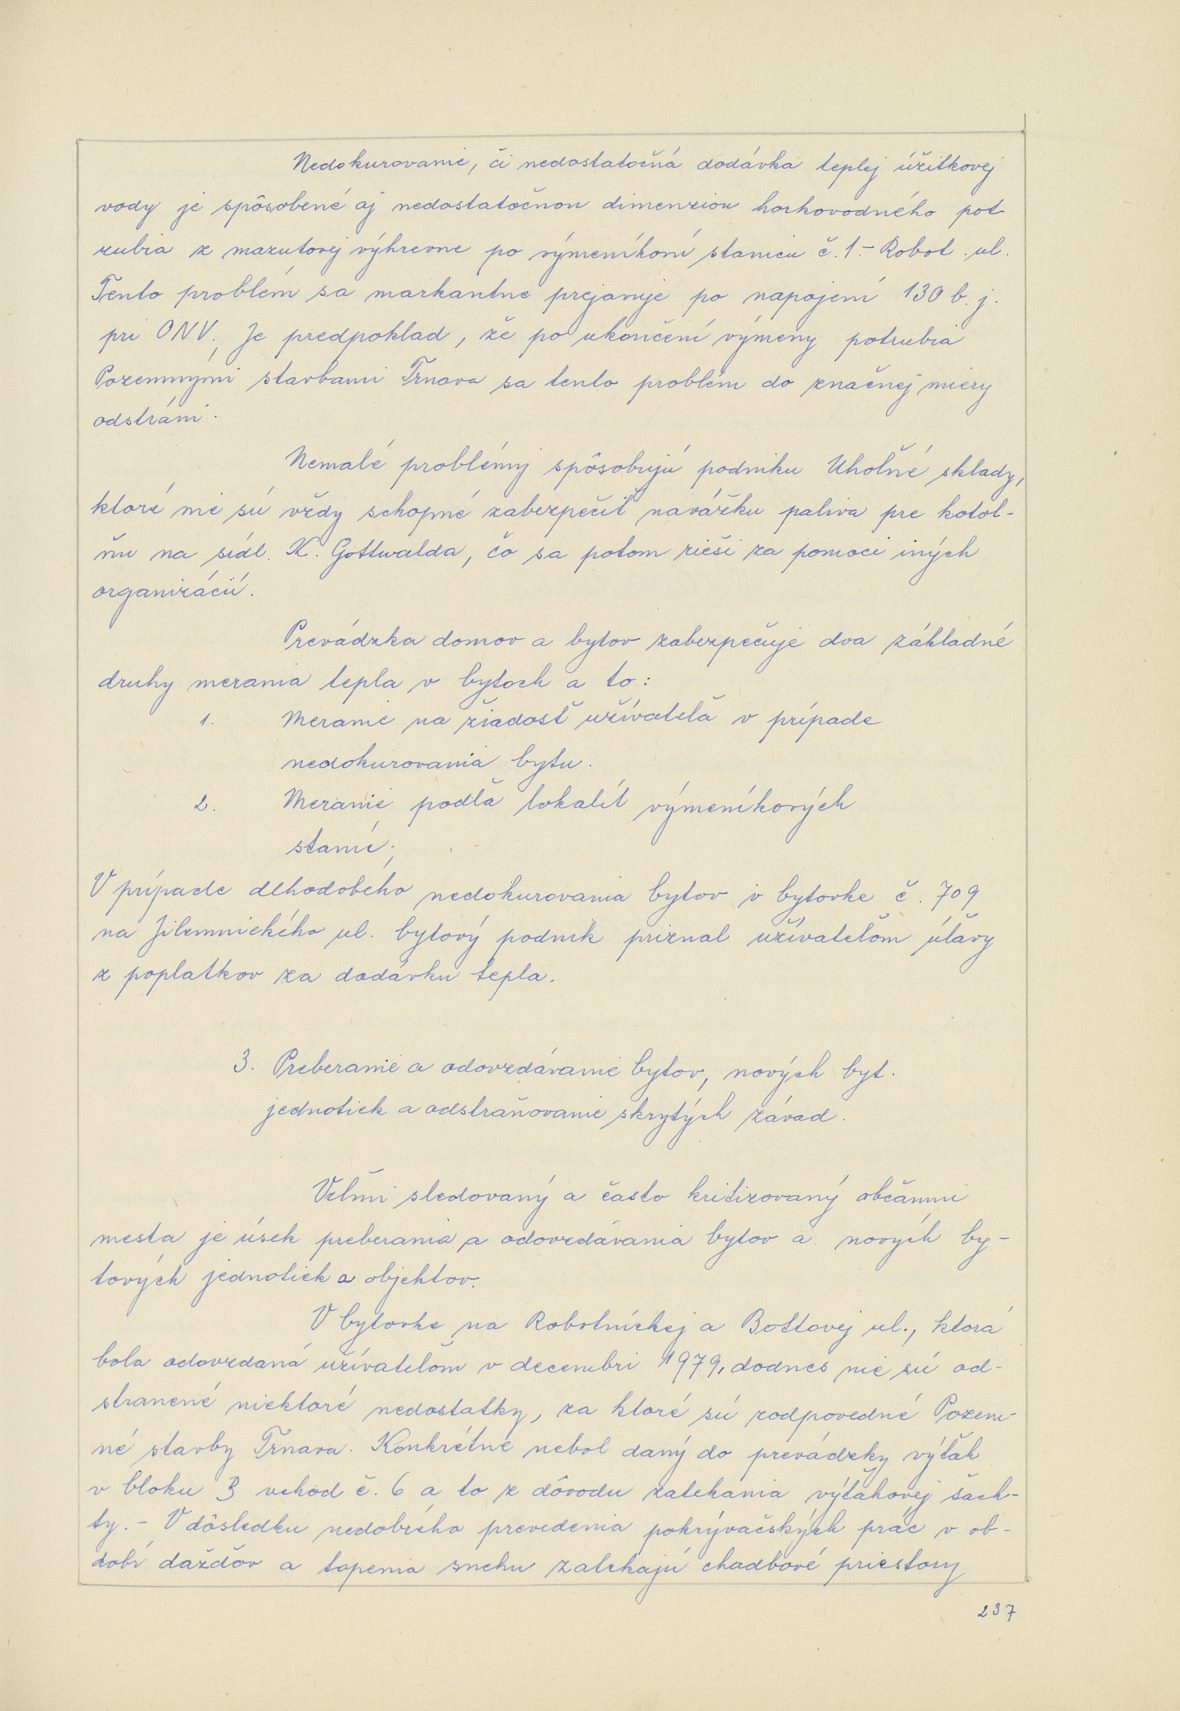 Nedokurovanie, či nedostatočná dodávka teplej úžitkovej
vody je spôsobené aj nedostatočnou dimenziou horkovodného pot-
rubia z mazutovej výhrevne po výmeníkovú stanicu č. 1.- Robot. ul.
Tento problém sa markantne prejavuje po napojení 130 b. j.
pri ONV. Je predpoklad, že po ukončení výmeny potrubia
Pozemnými stavbami Trnava sa tento problém do značnej miery
odstráni.
Nemalé problémy spôsobujú podniku Uhoľné sklady,
ktoré nie sú vždy schopné zabezpečiť navážku paliva pre kotol-
ňu na sídl. K. Gottwalda, čo sa potom rieši za pomoci iných
organizácií.
Prevádzka domov a bytov zabezpečuje dva základné
druhy merania tepla v bytoch a to:
1. Meranie na žiadosť užívateľa v prípade
nedokurovania bytu.
2. Meranie podľa lokalít výmeníkových
staníc.
V prípade dlhodobého nedokurovania bytov v bytovke č. 709
na Jilemnického ul. bytový podnik priznal užívateľom úľavy
z poplatkov za dodávku tepla.
3. Preberanie a odovzdávanie bytov, nových byt.
jednotiek a odstraňovanie skrytých závad.
Veľmi sledovaný a často kritizovaný občanmi
mesta je úsek preberania a odovzdávania bytov a nových by-
tových jednotiek a objektov.
V bytovke na Robotníckej a Bottovej ul., ktorá
bola odovzdaná užívateľom v decembri 1979, dodnes nie sú od-
stranené niektoré nedostatky, za ktoré sú zodpovedné Pozem-
né stavby Trnava. Konkrétne nebol daný do prevádzky výťah
v bloku B vchod č. 6 a to z dôvodu zatekania výťahovej šach-
ty. - V dôsledku nedobrého prevedenia pokrývačských prác v ob-
dobí dažďov a topenia snehu zatekajú chodbové priestory
237